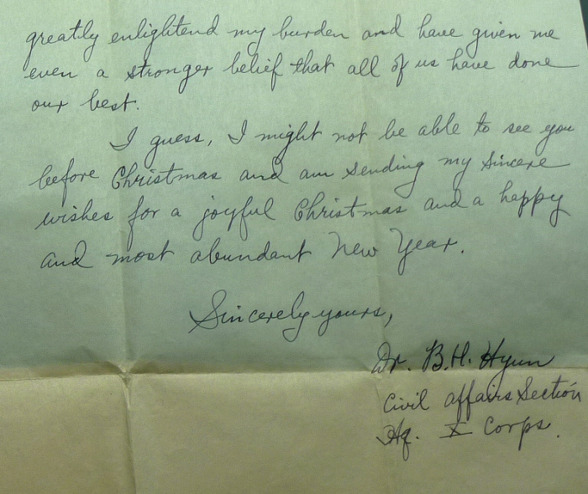 greatly enlightend my burden and have given me
even a stronger belief that all of us have done
our best.
I guess, I might not be able to see you
before Christmas and am sending my sincere
wishes for a joyful Christmas and a happy
and most abundant New Year.
Sincerely yours,
Dr. B.H. Hyun
Civil affairs Section
Hq. X Corps.